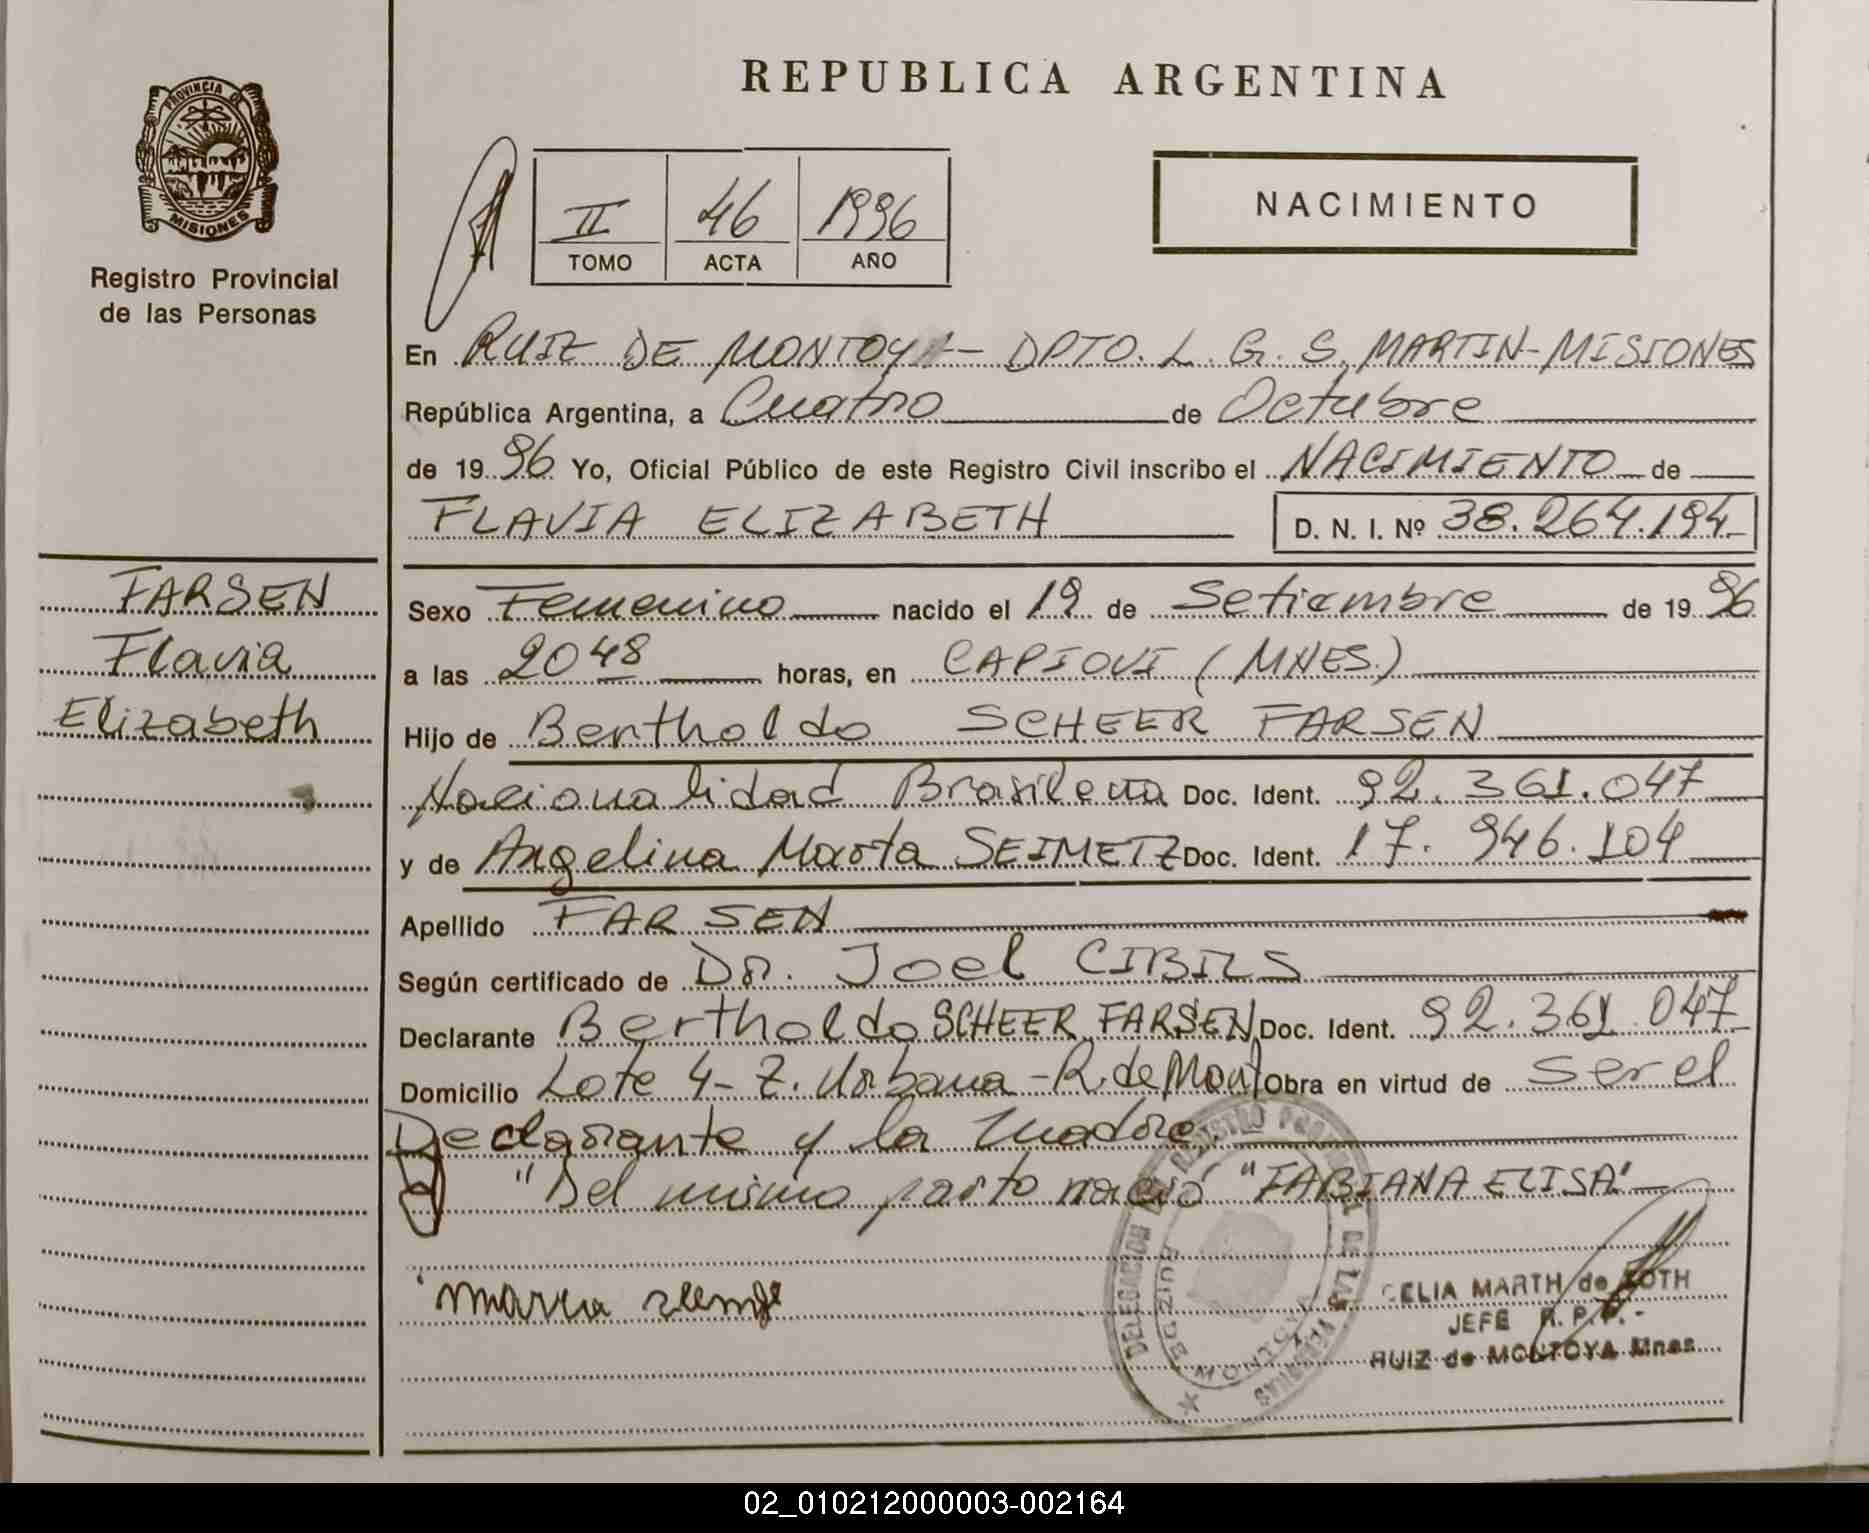 REPUBLICA ARGENTINA
PROVINCIA DE
MISIONES
Registro Provincial
de las Personas
II 46 1996
TOMO ACTA AÑO
NACIMIENTO
En RUIZ DE MONTOYA - DPTO. L. G. S. MARTIN - MISIONES
República Argentina, a Cuatro de Octubre
de 1996 Yo, Oficial Público de este Registro Civil inscribo el NACIMIENTO de
FLAVIA ELIZABETH D. N. I. Nº 38.264.194
FARSEN
Flavia
Elizabeth
Sexo Femenino nacido el 19 de Setiembre de 1996
a las 20 48 horas, en CAPIOVI (MNES.)
Hijo de Bertholdo SCHEER FARSEN
Nacionalidad Brasilena Doc. Ident. 92.361.047
y de Angelina Marta SEIMETZ Doc. Ident. 17.946.104
Apellido FARSEN
Según certificado de Dr. Joel CIBILS
Declarante Bertholdo SCHEER FARSEN Doc. Ident. 92.361.047
Domicilio Lote 4- Z. Urbana - R. de Mont Obra en virtud de Ser el
Declarante y la madre.
"Del mismo parto nació "FABIANA ELISA"
DELEGACION REGISTRO PROVINCIAL DE LAS PERSONAS
RUIZ DE MONTOYA
CELIA MARTH de TOTH
JEFE R.P.P.-
RUIZ de MONTOYA Mnes
02_010212000003-002164